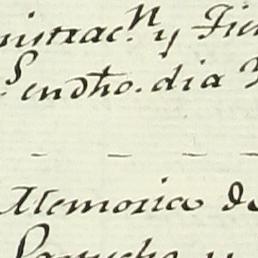 nistrac.n y Fie
S. en dho. dia
Memoria de